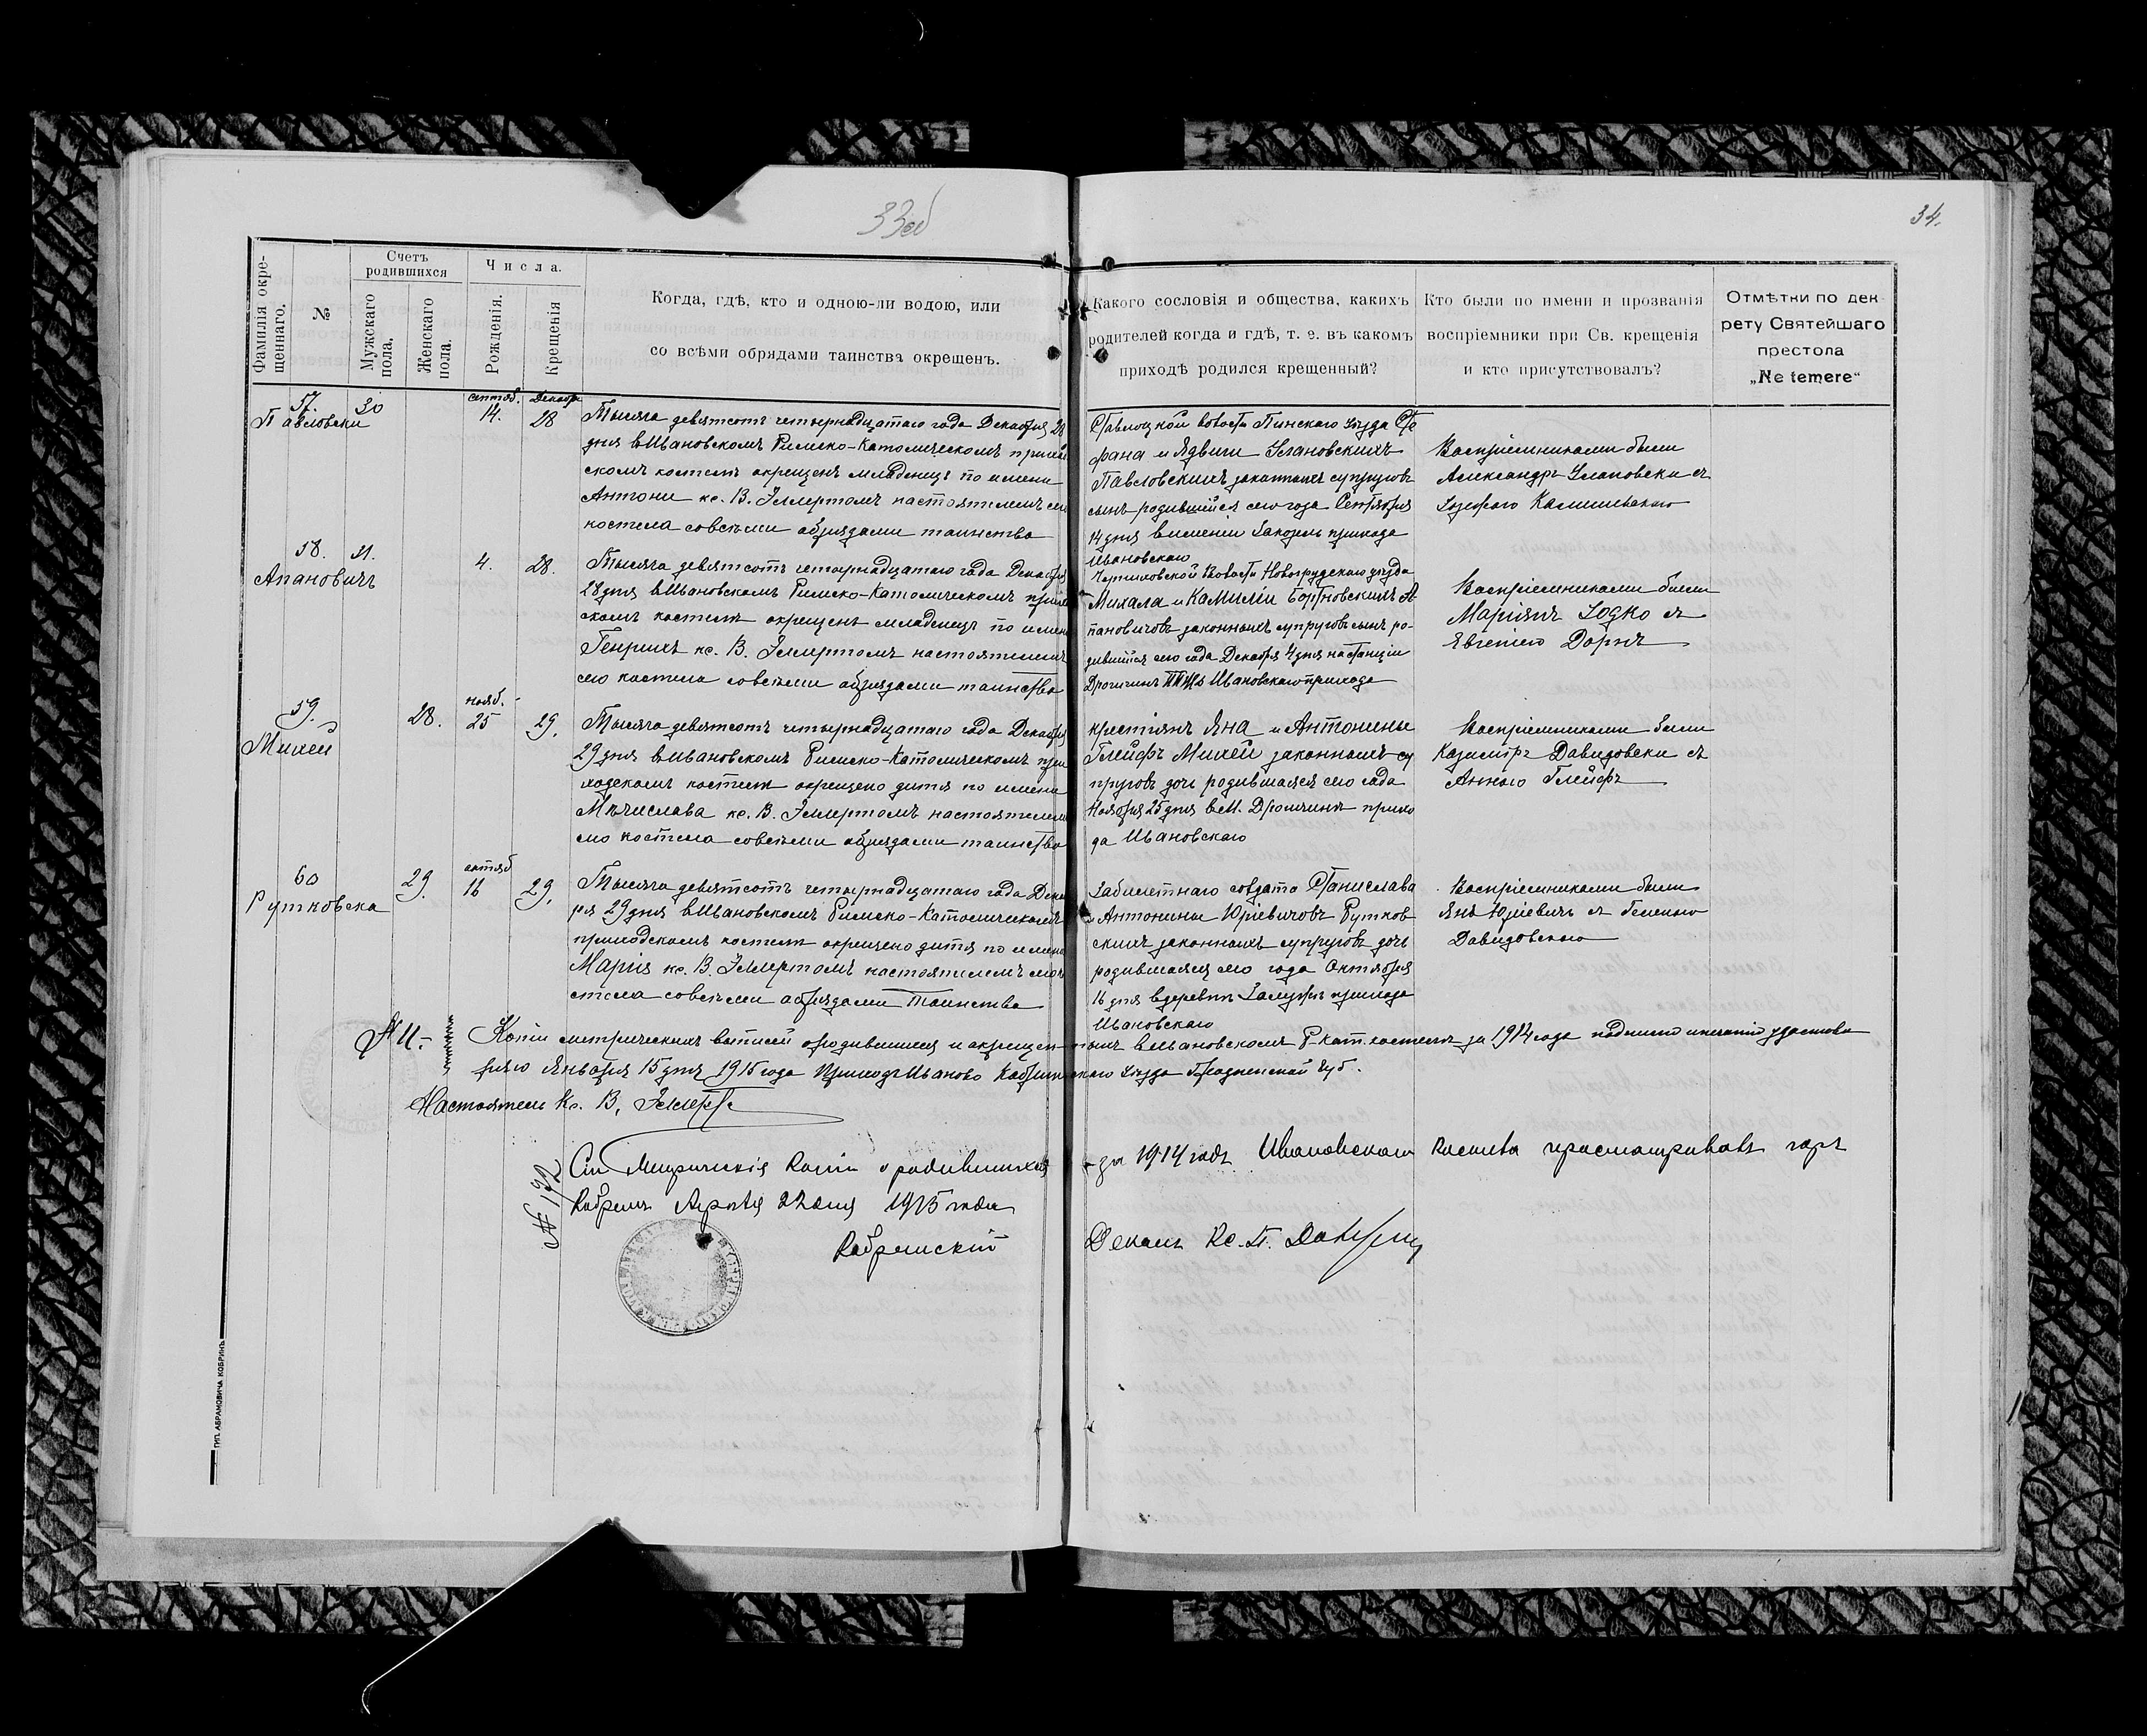 33об
34.
Фамилія окре-
щеннаго.
№
Счетъ
родившихся
Мужскаго
пола.
Женскаго
пола.
Числа.
Рожденія.
Крещенія
Когда, гдѣ, кто и одною-ли водою, или
со всѣми обрядами таинства окрещенъ.
Какого сословія и общества, какихъ
родителей когда и гдѣ, т. е. въ какомъ
приходѣ родился крещенный?
Кто были по имени и прозванія
воспріемники при Св. крещенія
и кто присутствовалъ?
Отмѣтки по дек
рету Святейшаго
престола
„Ne temere“
57.
Павловски
30
септяб.
14.
Декабр
28
Тысяча девятьсотъ четырнадцатаго года Декабря 28
дня в Ивановскомъ Римско-Католическомъ приход
скомъ костелѣ окрещенъ младенецъ по имени
Антони кс. В. Эллертомъ настоятелемъ сего
костела совсѣми обрядами таинства
Ставоцкой волости Пинскаго уѣзда Сте
фана и Ядвиги Улановскихъ
Павловскихъ законныхъ супруговъ
сынъ родившійся сего года Сентября
14 дня в имѣніи Закозель прихода
Ивановскаго
Воспріемниками были
Александръ Улановски съ
Іозефою
58.
Апановичъ
31.
4.
28.
Тысяча девятьсотъ четырнадцатаго года Декабря
28 дня в Ивановскомъ Римско-Католическомъ приход
скомъ костелѣ окрещенъ младенецъ по имени
Генрихъ кс. В. Эллертомъ настоятелемъ
сего костела совсѣми обрядами таинства
волости Новогрудскаго уѣзда
Михала и Камиліи Бортновскихъ А
пановичовъ законныхъ супруговъ сынъ ро-
дившійся сего года Декабря 4 дня на станціи
Дрогичинъ Ивановскаго прихода
Воспріемниками были
Маріянъ Іодко съ
Евгеніею Дорнъ
59.
Михей
28.
нояб.
25
29.
Тысяча девятьсотъ четырнадцатаго года Декабря
29 дня в Ивановскомъ Римско-Католическомъ при
ходскомъ костелѣ окрещено дитя по имени
Мѣчислава кс. В. Эллертомъ настоятелемъ
сего костела совсѣми обрядами таинства
крестіянъ Яна и Антонины
Глейфъ Михей законныхъ су
пруговъ дочь родившаяся сего года
Ноября 25 дня в м. Дрогичинѣ прихо
да Ивановскаго
Воспріемниками были
Казимиръ Давидовски съ
Анною Глейфъ
60
Рутковска
29.
октяб
16
29.
Тысяча девятьсотъ четырнадцатаго года Декаб
ря 29 дня в Ивановскомъ Римско-Католическомъ
приходскомъ костелѣ окрещено дитя по имени
Марія кс. В. Эллертомъ настоятелемъ сего ко
стела совсѣми обрядами таинства
Забилетнаго солдата Станислава
и Антонины Юріевичовъ Рутков
скихъ законныхъ супруговъ дочь
родившаяся сего года Октября
16 дня в деревнѣ прихода
Ивановскаго
Воспріемниками были
Янъ Юріевичъ съ Геленою
Давидовскою
№ 11.- Копіи метрическихъ выписей ородившихся и окрещен-ныхъ в Ивановскомъ Р-кат. костелѣ за 1914 года подписю и печатію удостовѣ
ряю Января 15 дня 1915 года Приходъ Иваново Кобринскаго уѣзда Гродненской губ.
Настоятель Кс. В. Эллертъ
№ 132
Сіи Метрическія Копіи о родившихся за 1914 годъ Ивановскаго Костела просматривалъ гор.
Кобринъ Апрѣля 22 дня 1915 года
Кобринскій Деканъ Кс.
ТИП. АБРАМОВИЧА КОБРИНЪ.